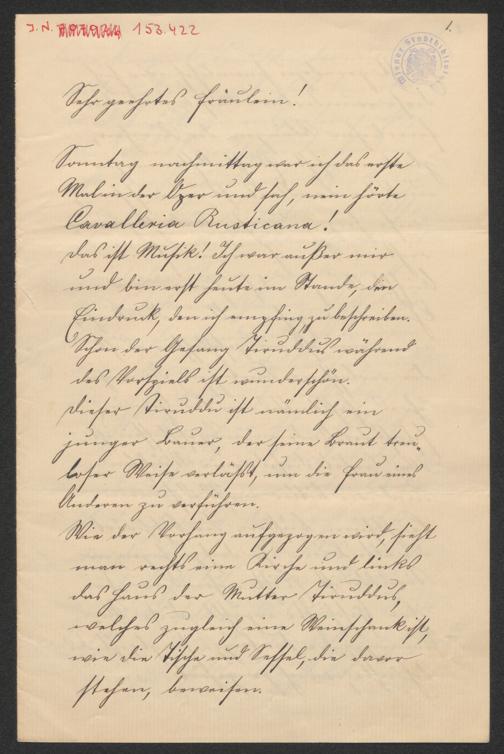 J.N. 153.422
1.
Wiener Stadtbibliothek
Sehr geehrtes Fräulein!
Sonntag nachmittag war ich das erste
Mal in der Oper und sah, nein hörte
Cavalleria Rusticana!
Das ist Musik! Ich war außer mir
und bin erst heute im Stande, den
Eindruck, den ich empfing, zu beschreiben.
Schon der Gesang Turuddus während
des Vorspiels ist wunderschön.
Dieser Turuddu ist nämlich ein
junger Bauer, der seine Braut treu-
loser Weise verläßt, um die Frau eines
Anderen zu verführen.
Wie der Vorhang aufgezogen wird, sieht
man rechts eine Kirche und links
das Haus der Mutter Turuddus,
welches zugleich eine Weinschank ist,
wie die Tische und Sessel, die davor
stehen, beweisen.